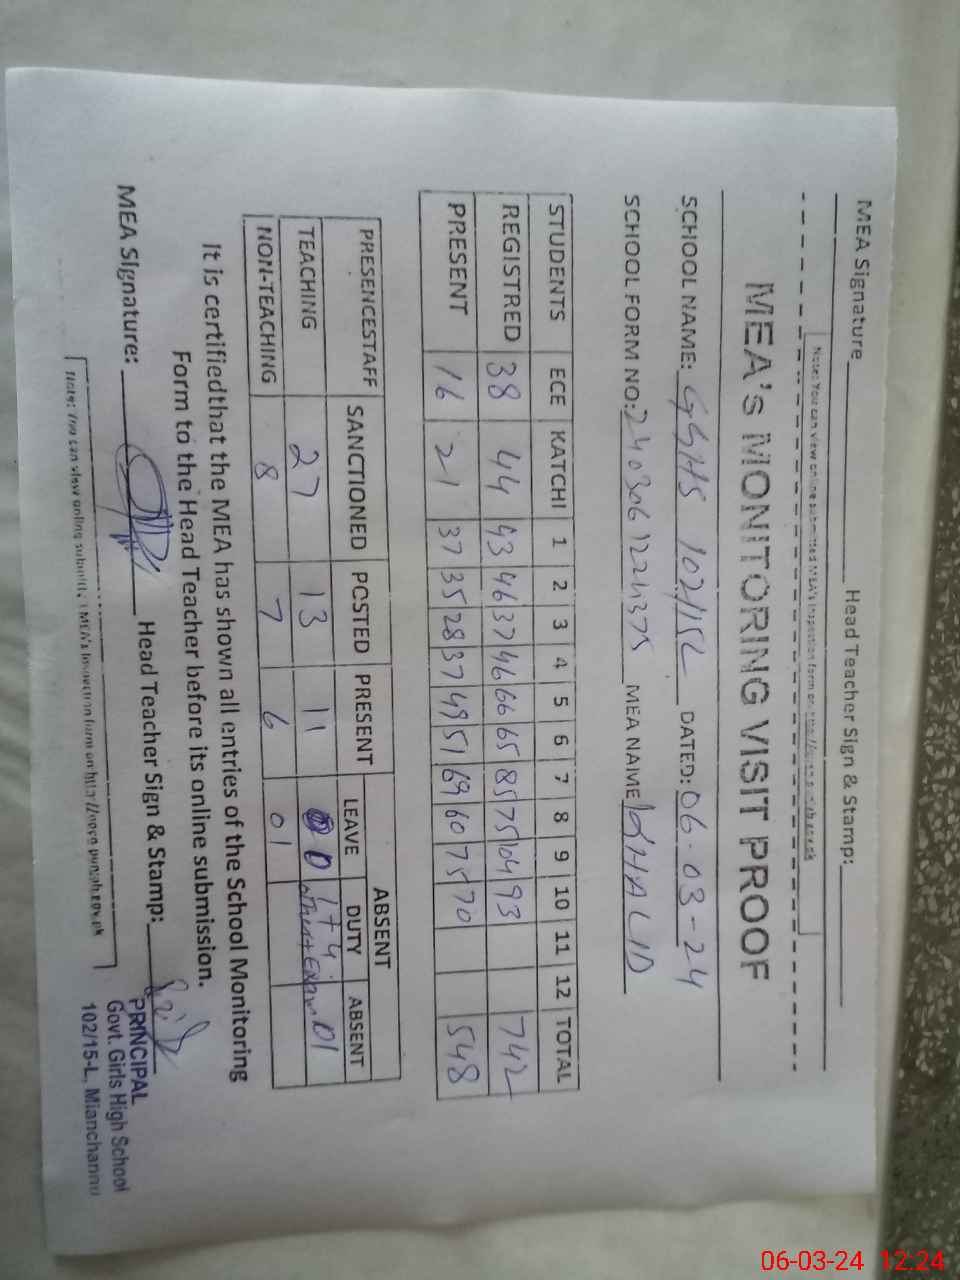 MEA Signature Head Teacher Sign & Stamp:
Note: You can view online submitted MEA's Inspection form on
MEA'S MONITORING VISIT PROOF
SCHOOL NAME: GGHS 102/15L DATED: 06-03-24
SCHOOL FORM NO: 2403061224375 MEA NAME KHALID
STUDENTS ECE KATCHI 1 2 3 4 5 6 7 8 9 10 11 12 TOTAL
REGISTRED 38 44 43 46 37 46 66 65 85 75 104 93 742
PRESENT 16 21 37 35 28 37 49 51 69 60 75 70 548
PRESENCESTAFF SANCTIONED POSTED PRESENT ABSENT
LEAVE DUTY ABSENT
TEACHING 27 13 11 0 1+4 01
NON-TEACHING 8 7 6 01
It is certifiedthat the MEA has shown all entries of the School Monitoring
Form to the Head Teacher before its online submission.
MEA Signature: Head Teacher Sign & Stamp:
PRINCIPAL
Govt. Girls High School
102/15-L, Mianchannu
Note: You can view online submitted MEA's Inspection form on
06-03-24 12:24